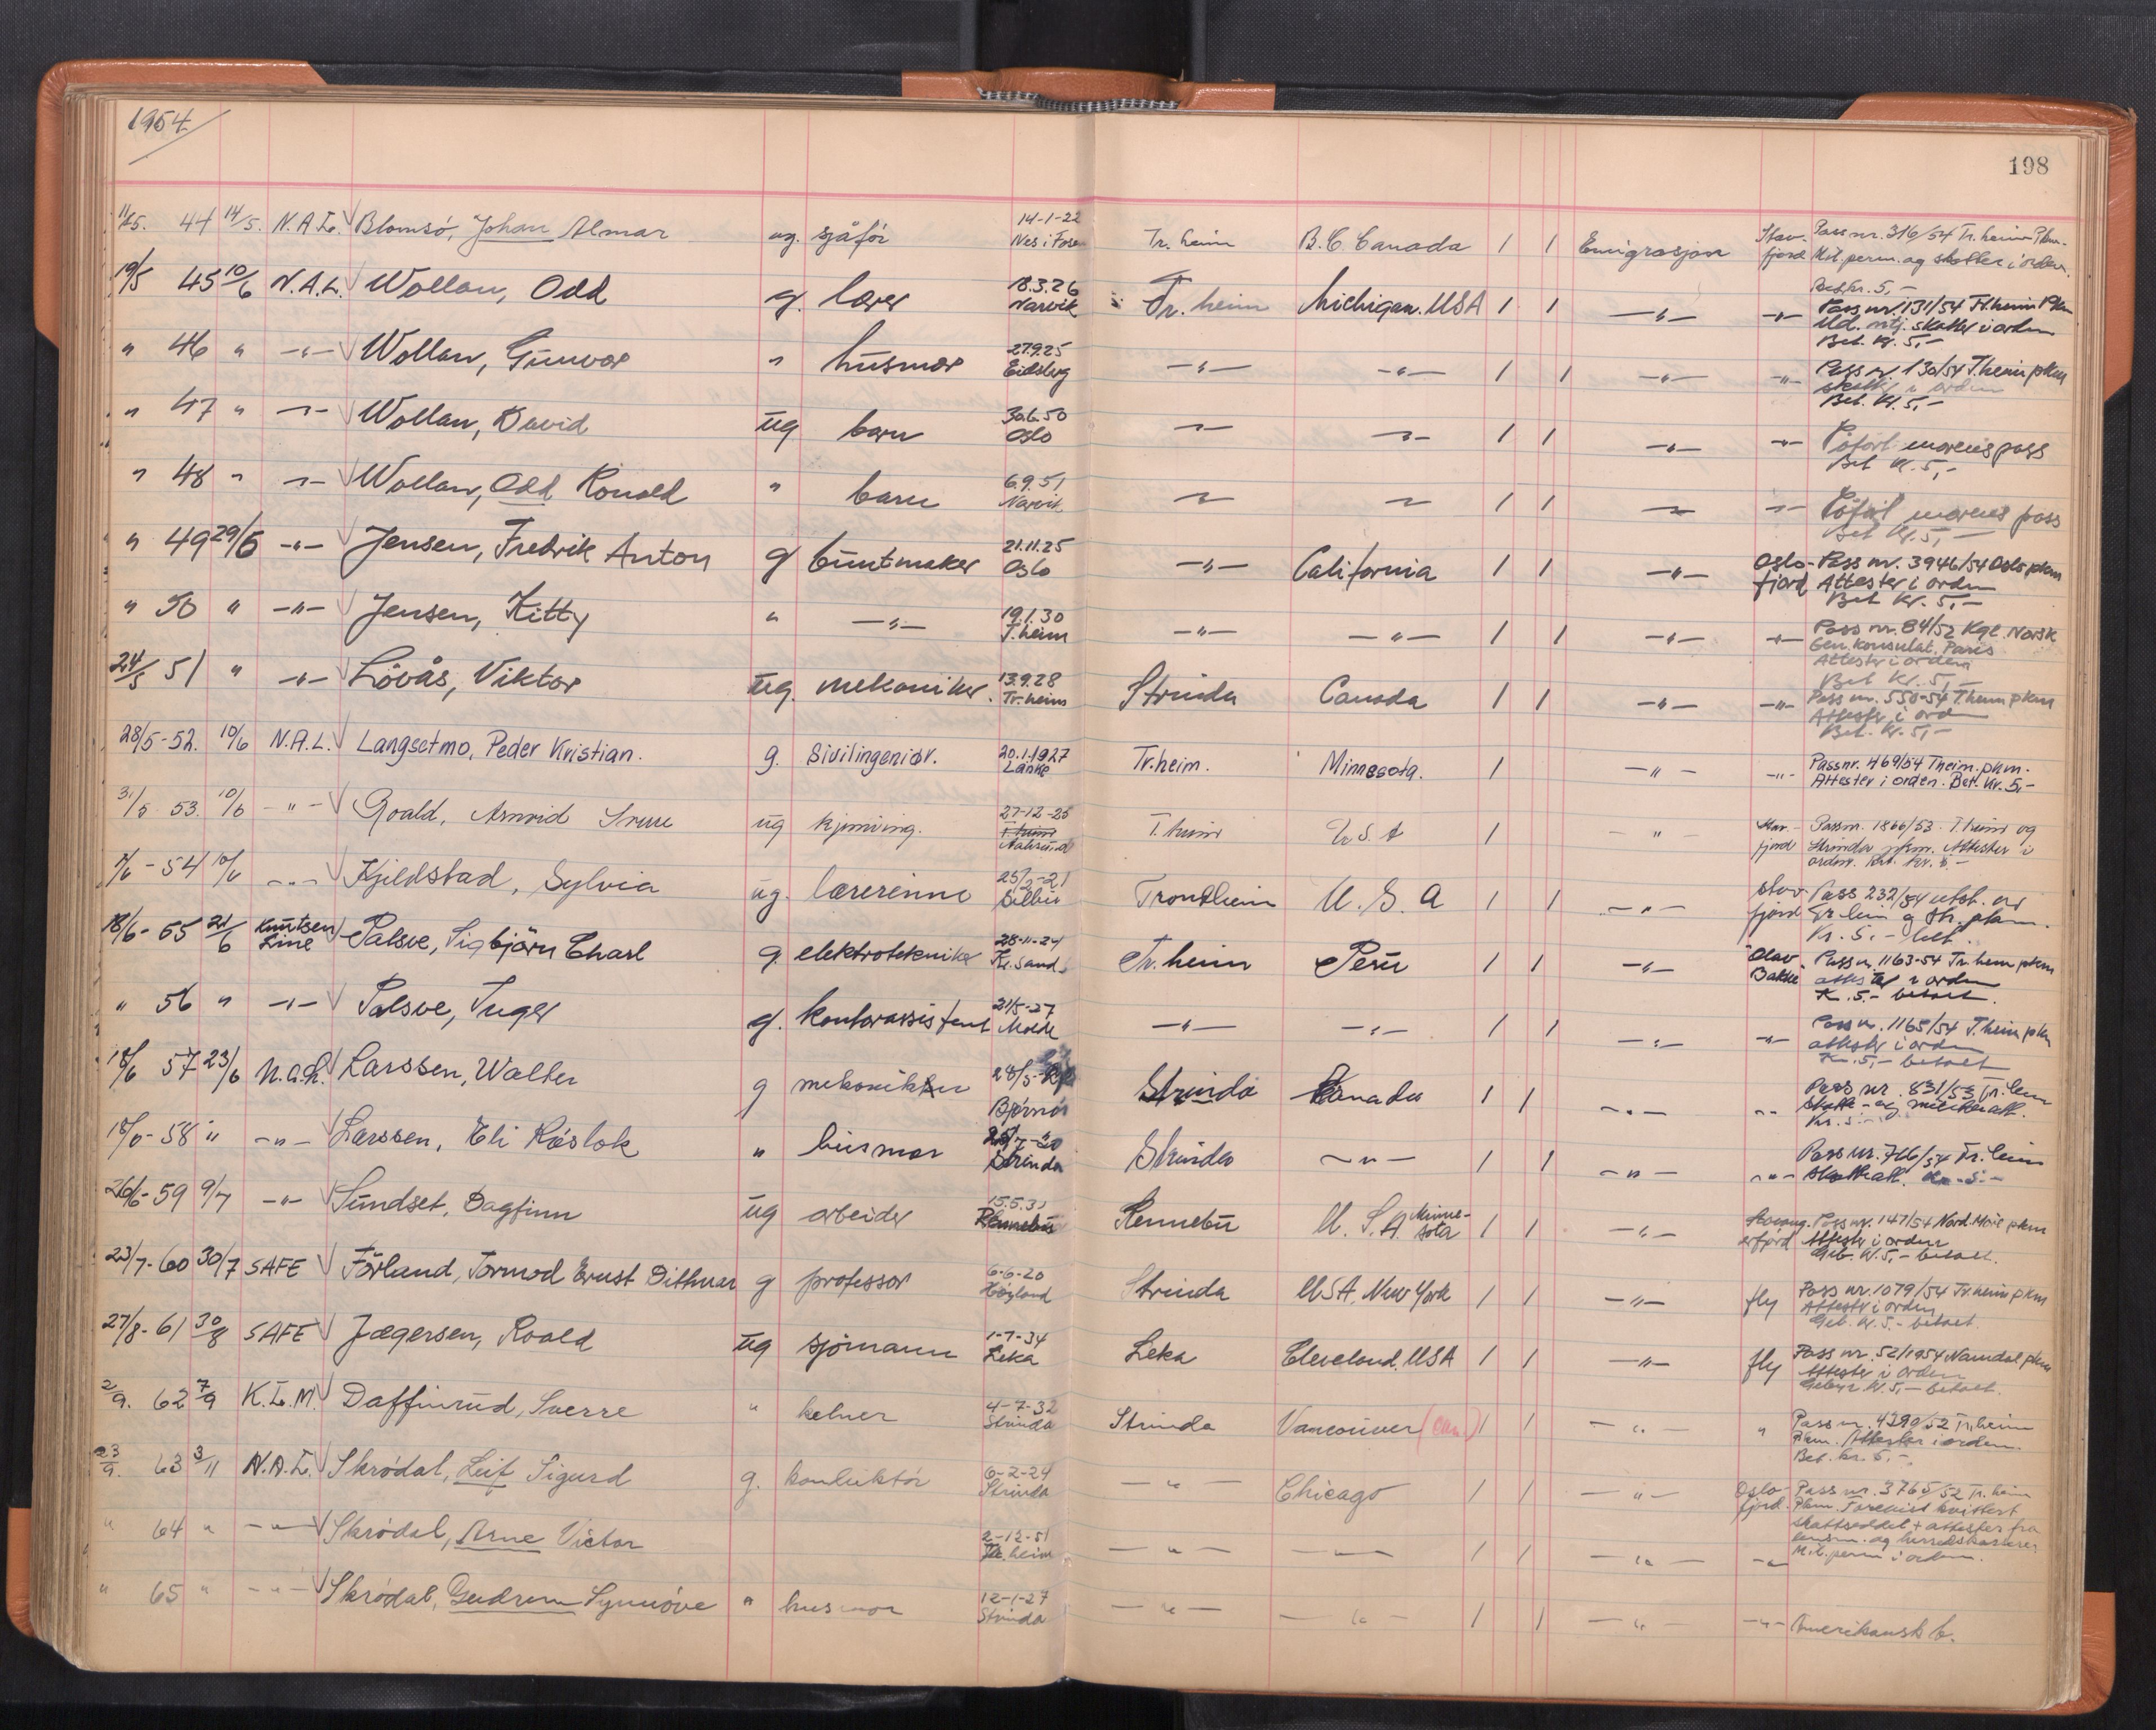 1954
198
11/5. 44 14/5. N.A.L. Blomsö, Johan Almar ug. sjåfør 14-1-22 Nes i Fosen Tr. heim B.C. Canada 1 1 Emigrasjon Stav. fjord Pass nr. 316/54 Tr. heim Pkm. Mil. perm. og skatter i orden.
Bet. kr. 5,-
19/5 45 10/6 N.A.L. Wollan, Odd g. lærer 18.3.26 Narvik Tr. heim Michigan. USA 1 1 -"- -"- Pass nr. 131/54 Tr.heim Pkm
skatter i orden
Bet. kr. 5,-
" 46 " -"- Wollan, Gunvor " husmor 27.9.25 Eidsberg -"- -"- 1 1 -"- -"- Pass nr 130/54 T.heim pkm
skatter i orden
Bet. kr. 5,-
" 47 " -"- Wollan, David ug barn 30.6.50 Oslo -"- -"- 1 1 -"- -"- Påført morens pass
Bet kr. 5,-
" 48 " -"- Wollan, Odd Ronald " barn 6.9.51 Narvik -"- -"- 1 1 -"- -"- Påført morens pass
Bet kr. 5,-
" 49 29/6 -"- Jensen, Fredrik Anton g buntmaker 21.11.25 Oslo -"- California 1 1 -"- Oslo-fjord Pass nr. 3946/54 Oslo pkm
Attester i orden
Bet kr. 5,-
" 50 " -"- Jensen, Kitty " -"- 19.1.30 T.heim -"- -"- 1 1 -"- -"- Pass nr. 84/52 Kgl. Norsk
Gen. konsulat, Paris
Attester i orden
Bet kr. 5,-
24/5 51 " -"- Lövås, Viktor ug. mekaniker. 13.9.28 Tr.heim Strinda Canada 1 1 -"- -"- Pass nr. 550-54 T.heim pkm
Attester i orden
Bet. kr. 5,-
28/5-52. 10/6 N.A.L. Langsetmo, Peder Kristian. g. Sivilingeniør. 20.1.1927 Lånke Tr.heim. Minnesota. 1 -"- -"- Passnr. 469/54 T.heim. pkm.
Attester i orden. Bet. kr. 5,-
31/5 53. 10/6 -"- Goald, Arnvid ug 27-12-25 T.heim T.heim U.S.A 1 -"- Stav.-fjord Passnr. 1866/53. T.heim og
Strinda pkm. Attester i
orden. Bet. kr. 5-
1/6-54 10/6 -"- Kjeldstad, Sylvia ug. lærerinne 25/2-21 Selbu Trondheim U.S.A 1 1 -"- Stav. fjord Pass 232/54 utst. av
Tr.heim og Str. pkm.
Kr. 5.- bet.
18/6-55 21/6 Knutsen Line Palsve, Sigbjörn Charl g. elektrotekniker 28-11-24 Kr.sand S Tr.heim Peru 1 1 -"- "Olav Bakke" Pass nr. 1163-54 Tr.heim pkm
attester i orden
K. 5.- betalt.
" 56 " -"- Palsve, Inger g. kontorassistent 21/5-27 Molde -"- -"- 1 1 -"- -"- Pass nr. 1165/54 T.heim pkm
attester i orden
Kr. 5,- betalt
18/6 57 23/6 N.A.L. Larssen, Walter g mekaniker 28/5- Bjørnör Strinda Canada 1 1 -"- -"- Pass nr. 831/53 Tr.heim
Skatte- og militæratt.
Kr. 5.-
18/6-58 " -"- Larssen, Eli " husmor Strinda Strinda -"- 1 1 -"- -"- Pass nr. 746/54 Tr.heim
Skatteatt. Kr. 5.-
26/6-59 9/7 -"- Sundset, Dagfinn ug arbeider 15.5.31 Rennebu Rennebu U.S.A. Minne-sota 1 1 -"- Stavang-erfjord Pass nr. 147/54 Nord-Møre pkm
Attester i orden
Geb. kr. 5,- betalt.
23/7-60 30/7 SAFE Förland, Tormod Ernst Dithmar g professor 6-6-20 Höyland Strinda USA, New York 1 1 -"- fly Pass nr. 1079/54 Tr.heim pkm
Attester i orden
Geb. kr. 5.- betalt.
27/8-61 30/8 SAFE Jægersen, Roald ug sjömann 1-7-34 Leka Leka Cleveland, USA 1 1 -"- fly Pass nr. 52/1954 Namdal pkm
Attester i orden
Gebyr kr. 5,- betalt.
2/9. 62 7/9 K.L.M. Daffinrud, Sverre " kelner 4-7-32 Strinda Strinda Vancouver (Can.) 1 1 -"- " Pass nr. 4390/52 Tr.heim
Pkm. Attester i orden.
Bet. kr. 5.-
23/9. 63 3/11 N.A.L. Skrödal, Leif Sigurd g. konduktör 6-2-24 Strinda -"- Chicago 1 1 -"- Oslo-fjord Pass nr. 3765/52 Tr. heim
Pkm. Forevist kvittert
skatteseddel + attester fra
lensm. og herredskasserer
Mil. perm i orden.
" 64 " -"- Skrödal, Arne Victor 2-12-51 Tr. heim -"- -"- 1 1 -"- -"-
" 65 " -"- Skrödal, Gudrun Synnöve " husmor 12-1-27 Strinda -"- -"- 1 1 -"- -"- Amerikansk b.